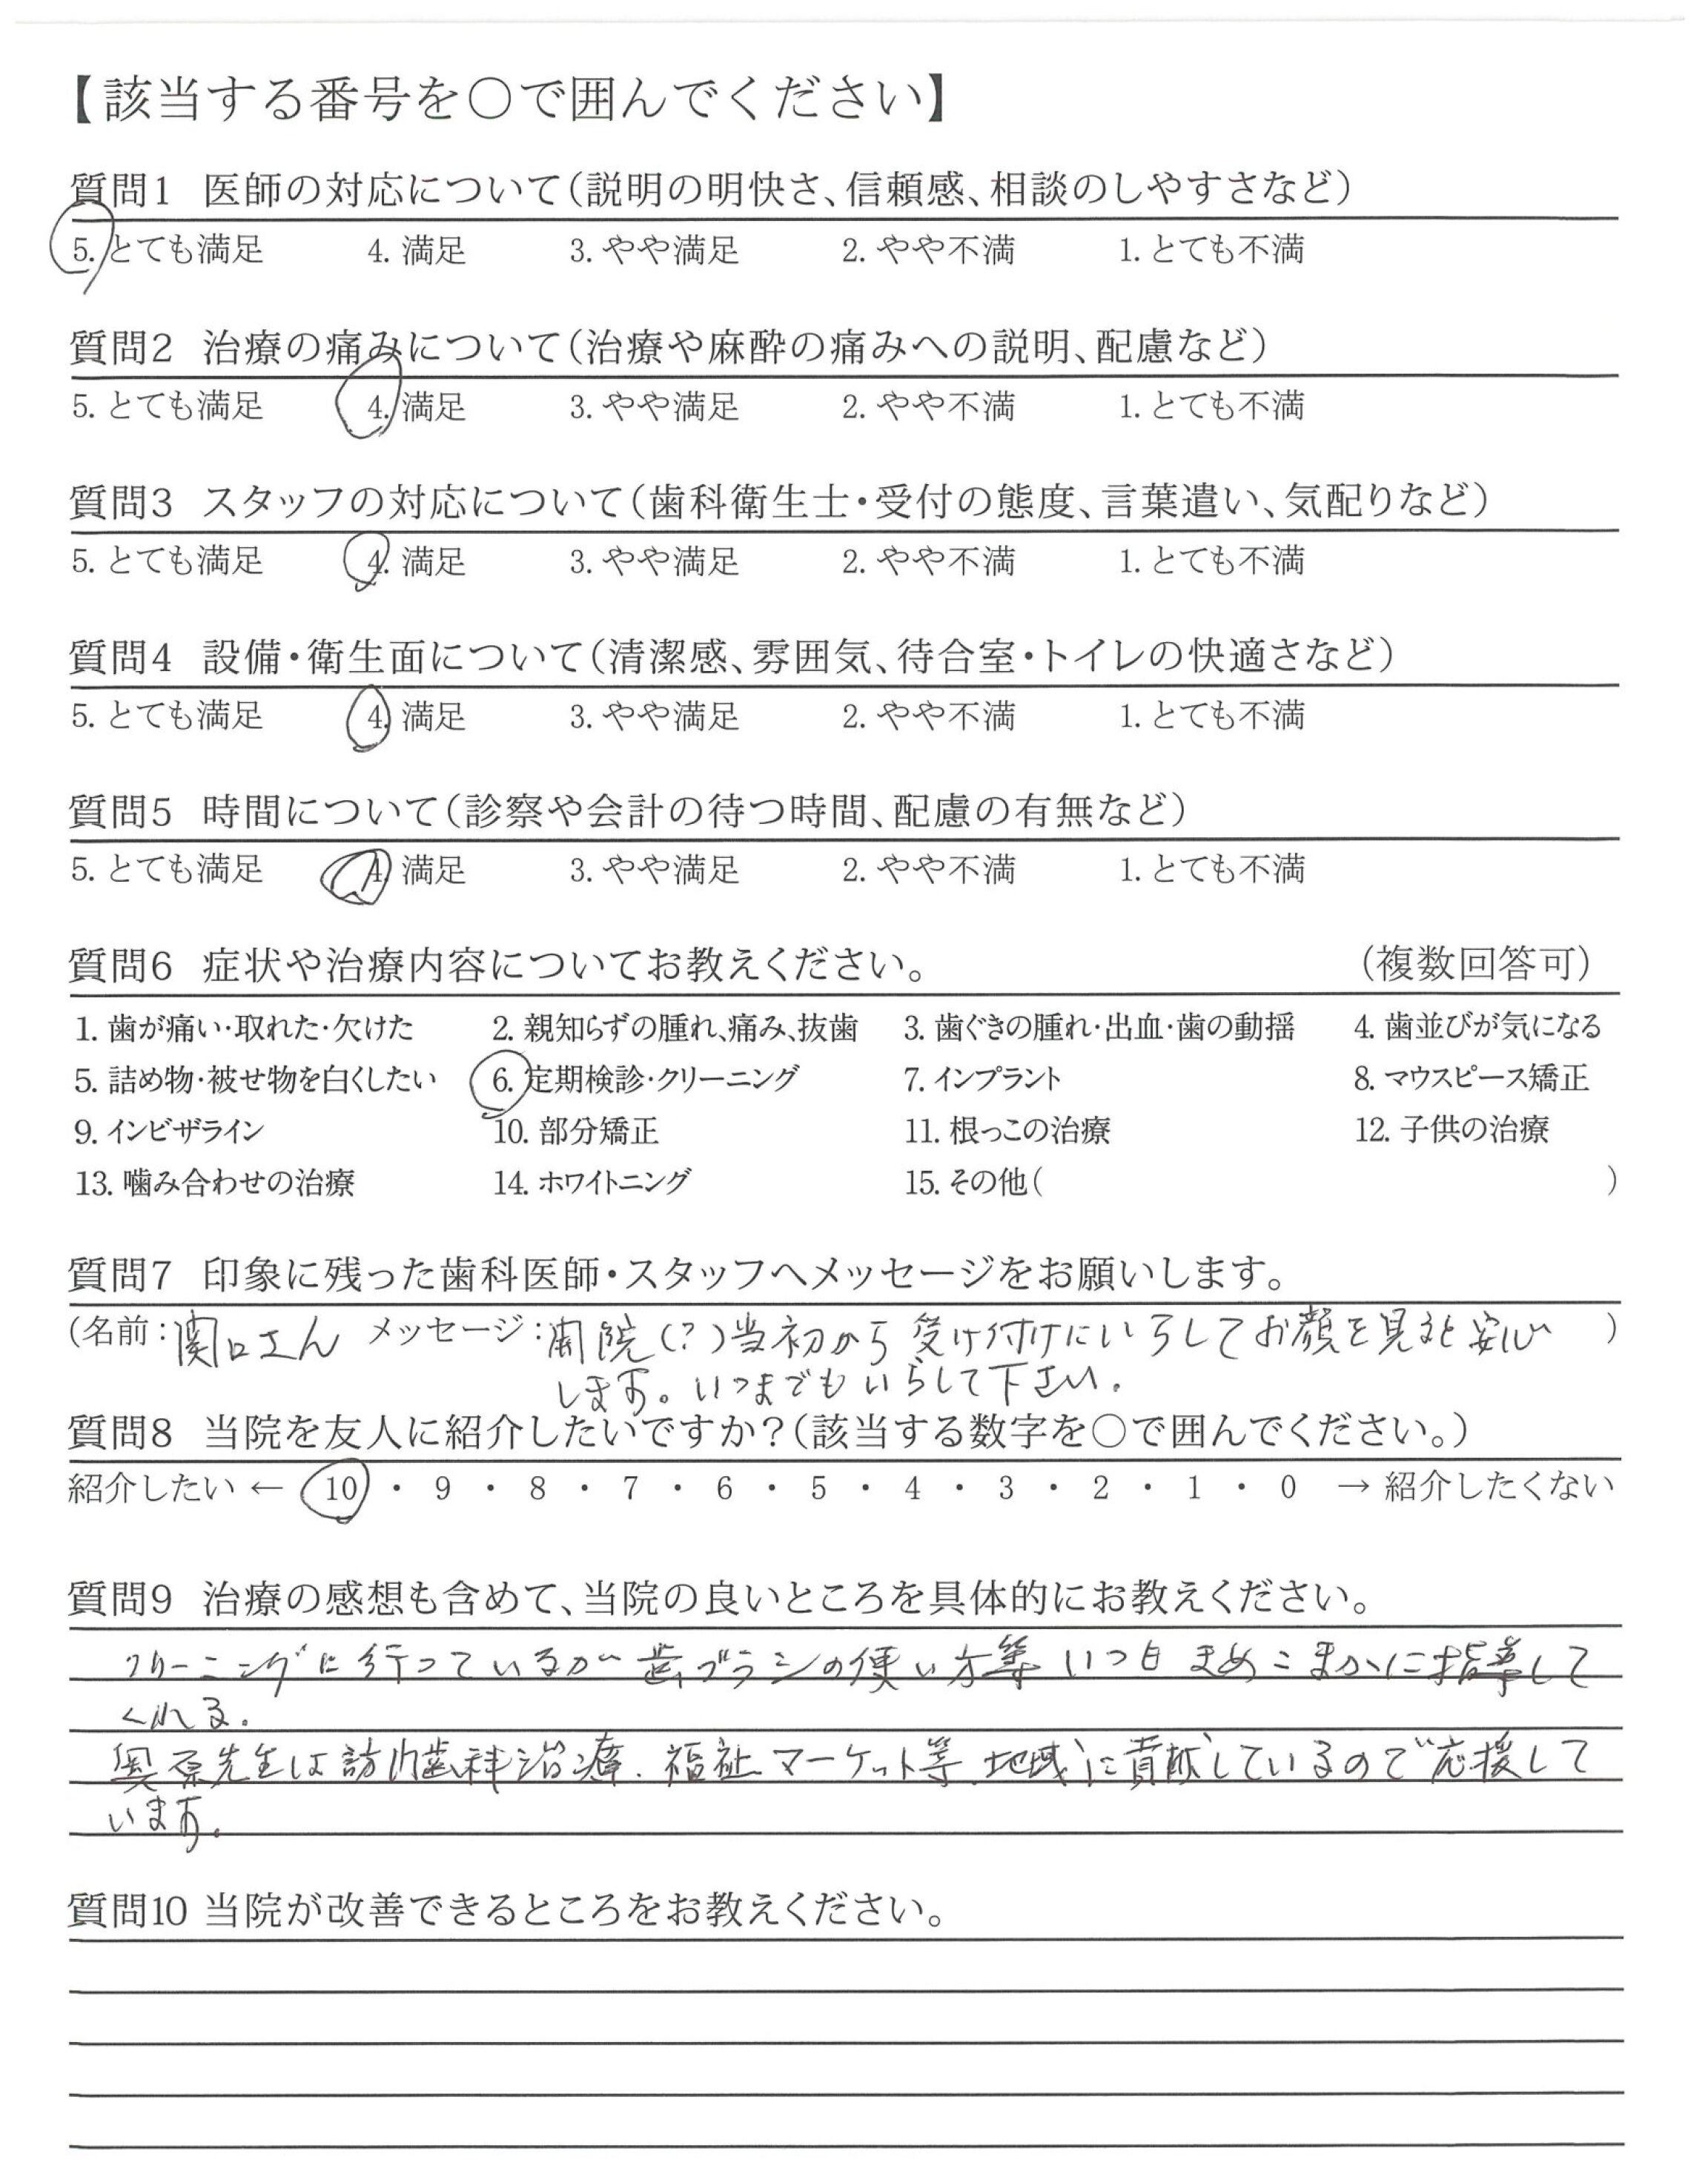 【該当する番号を○で囲んでください】
質問1 医師の対応について（説明の明快さ、信頼感、相談のしやすさなど）
5. とても満足 4. 満足 3. やや満足 2. やや不満 1. とても不満
質問2 治療の痛みについて（治療や麻酔の痛みへの説明、配慮など）
5. とても満足 4. 満足 3. やや満足 2. やや不満 1. とても不満
質問3 スタッフの対応について（歯科衛生士・受付の態度、言葉遣い、気配りなど）
5. とても満足 4. 満足 3. やや満足 2. やや不満 1. とても不満
質問4 設備・衛生面について（清潔感、雰囲気、待合室・トイレの快適さなど）
5. とても満足 4. 満足 3. やや満足 2. やや不満 1. とても不満
質問5 時間について（診察や会計の待つ時間、配慮の有無など）
5. とても満足 4. 満足 3. やや満足 2. やや不満 1. とても不満
質問6 症状や治療内容についてお教えください。 （複数回答可）
1. 歯が痛い・取れた・欠けた 2. 親知らずの腫れ、痛み、抜歯 3. 歯ぐきの腫れ・出血・歯の動揺 4. 歯並びが気になる
5. 詰め物・被せ物を白くしたい 6. 定期検診・クリーニング 7. インプラント 8. マウスピース矯正
9. インビザライン 10. 部分矯正 11. 根っこの治療 12. 子供の治療
13. 噛み合わせの治療 14. ホワイトニング 15. その他（ ）
質問7 印象に残った歯科医師・スタッフへメッセージをお願いします。
（名前：関口さん メッセージ：開院（?）当初から受け付けにいらしてお顔を見ると安心 ）
します。いつまでもいらして下さい.
質問8 当院を友人に紹介したいですか？（該当する数字を○で囲んでください。）
紹介したい ← 10 ・ 9 ・ 8 ・ 7 ・ 6 ・ 5 ・ 4 ・ 3 ・ 2 ・ 1 ・ 0 → 紹介したくない
質問9 治療の感想も含めて、当院の良いところを具体的にお教えください。
クリーニングに行っているが歯ブラシの使い方等 いつも まめこまかに指導して
くれる.
奥原先生は訪問歯科治療. 福祉マーケット等. 地域に貢献しているので応援して
います.
質問10 当院が改善できるところをお教えください。